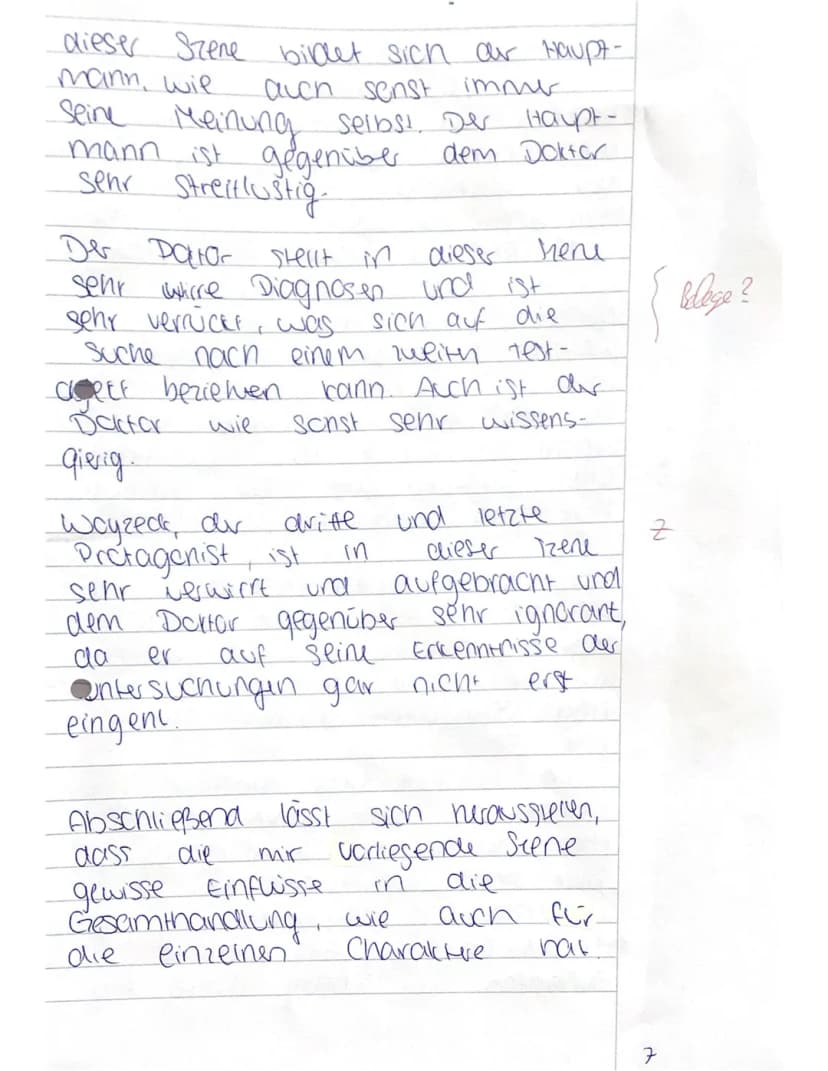 dieser Szene bildet sich der Haupt-
mann, wie auch sonst immer
seine Meinung selbst. Der Haupt-
mann ist gegenüber dem Doktor
sehr streitlustig.
Der Doktor stellt in dieser Szene
sehr wirre Diagnosen und ist
Belege?
sehr verrückt, was sich auf die
Suche nach einem zweiten Test-
beziehen kann. Auch ist der
Doktor wie sonst sehr wissens-
gierig.
Woyzeck, der dritte und letzte
Z
Protagonist, ist in dieser Szene
sehr verwirrt und aufgebracht und
dem Doktor gegenüber sehr ignorant,
da er auf seine Erkenntnisse der
Untersuchungen gar nicht erst
eingeht.
Abschließend lässt sich herausstellen,
dass die mir vorliegende Szene
gewisse Einflüsse in die
Gesamthandlung, wie auch für
die einzelnen Charaktere hat.
7